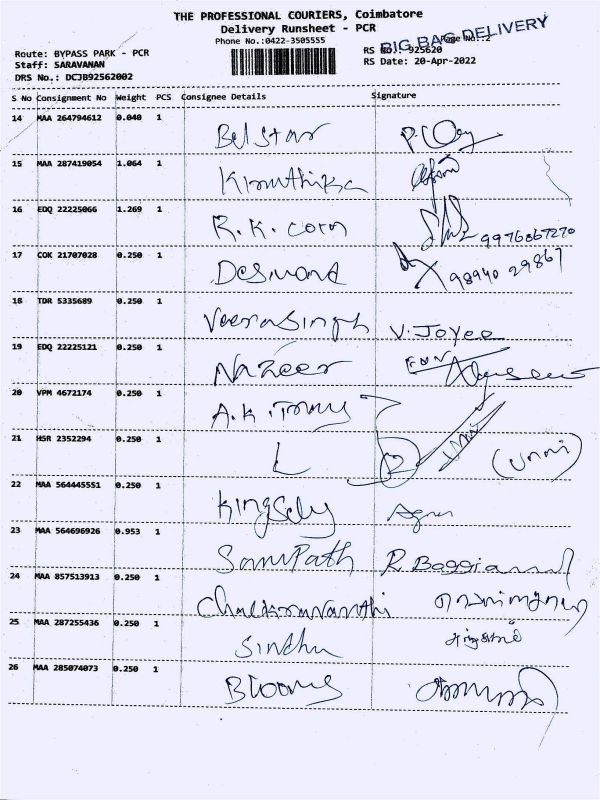 THE PROFESSIONAL COURIERS, Coimbatore
Delivery Runsheet - PCR
Phone No.:0422-3505555
BIG BAG DELIVERY
Page No.:2
Route: BYPASS PARK - PCR
RS No.: 925620
Staff: SARAVANAN
RS Date: 20-Apr-2022
DRS No.: DCJB92562002
S No Consignment No Weight PCS Consignee Details Signature
14 MAA 264794612 0.040 1 Bel Star
15 MAA 287419054 1.064 1 Kiruthika
16 EDQ 22225066 1.269 1 R.K. corn 9976867270
17 COK 21707028 0.250 1 Desmond 98940 29867
18 TDR 5335689 0.250 1 Veerasingh V. Joyee
19 EDQ 22225121 0.250 1 Nazeer
20 VPM 4672174 0.250 1 A.K.
21 HSR 2352294 0.250 1 L 2 (unni)
22 MAA 564445551 0.250 1 Kingsely
23 MAA 564696926 0.953 1 SamPath R.
24 MAA 857513913 0.250 1
25 MAA 287255436 0.250 1 Sindhu
26 MAA 285074073 0.250 1 Blooms